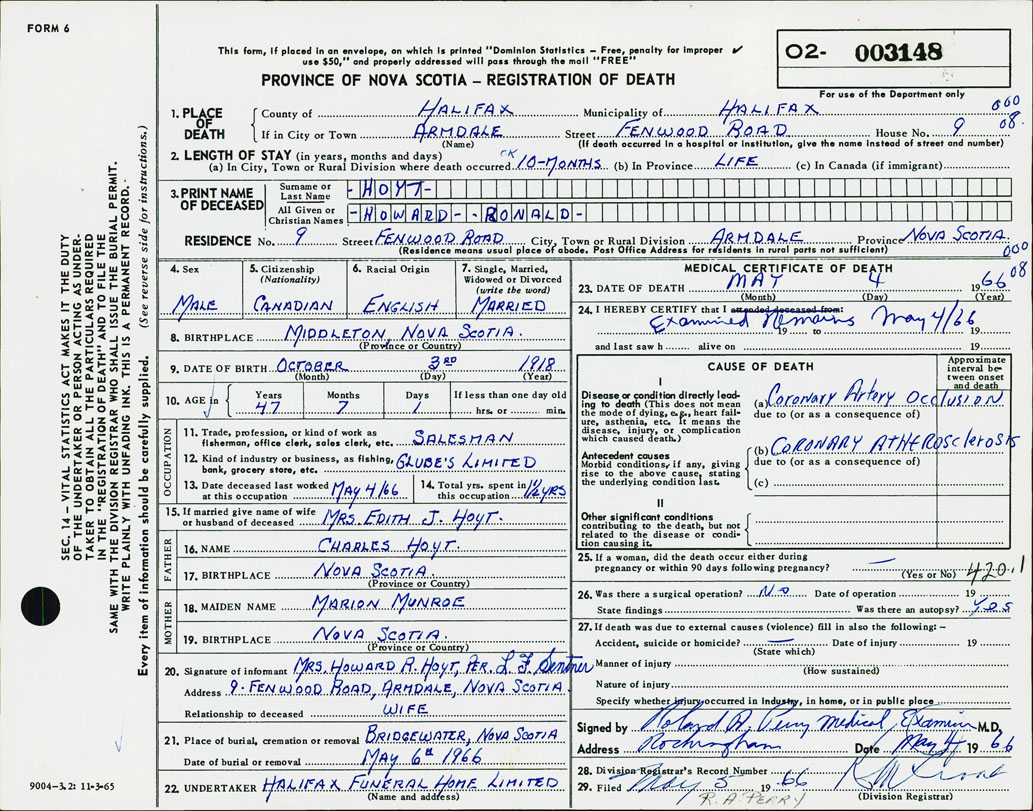 FORM 6
This form, if placed in an envelope, on which is printed "Dominion Statistics – Free, penalty for improper
use $50," and properly addressed will pass through the mail "FREE"
PROVINCE OF NOVA SCOTIA – REGISTRATION OF DEATH
02- 003148
For use of the Department only
1. PLACE OF DEATH
County of HALIFAX Municipality of HALIFAX 060
If in City or Town ARMDALE Street FENWOOD ROAD House No. 9 08.
(Name) (If death occurred in a hospital or institution, give the name instead of street and number)
2. LENGTH OF STAY (in years, months and days)
(a) In City, Town or Rural Division where death occurred OK 10-MONTHS (b) In Province LIFE (c) In Canada (if immigrant)
3. PRINT NAME OF DECEASED
Surname or Last Name -HOYT-
All Given or Christian Names -HOWARD--RONALD-
RESIDENCE No. 9 Street FENWOOD ROAD City, Town or Rural Division ARMDALE Province NOVA SCOTIA.
(Residence means usual place of abode. Post Office Address for residents in rural parts not sufficient) 000
08
4. Sex
MALE
5. Citizenship
(Nationality)
CANADIAN
6. Racial Origin
ENGLISH
7. Single, Married,
Widowed or Divorced
(write the word)
MARRIED
8. BIRTHPLACE MIDDLETON, NOVA SCOTIA.
(Province or Country)
9. DATE OF BIRTH OCTOBER 3RD 1918
(Month) (Day) (Year)
10. AGE in Years Months Days If less than one day old
47 7 1 hrs. or min.
OCCUPATION
11. Trade, profession, or kind of work as
fisherman, office clerk, sales clerk, etc. SALESMAN
12. Kind of industry or business, as fishing,
bank, grocery store, etc. GLUBE'S LIMITED
13. Date deceased last worked
at this occupation MAY 4/66
14. Total yrs. spent in
this occupation 1½ YRS
15. If married give name of wife
or husband of deceased MRS. EDITH J. HOYT.
FATHER
16. NAME CHARLES HOYT.
17. BIRTHPLACE NOVA SCOTIA.
(Province or Country)
MOTHER
18. MAIDEN NAME MARION MUNROE
19. BIRTHPLACE NOVA SCOTIA.
(Province or Country)
20. Signature of informant MRS. HOWARD R. HOYT, PER. L F Sentner
Address 9. FENWOOD ROAD, ARMDALE, NOVA SCOTIA.
Relationship to deceased WIFE
21. Place of burial, cremation or removal BRIDGEWATER, NOVA SCOTIA
Date of burial or removal MAY 6th 1966
22. UNDERTAKER HALIFAX FUNERAL HOME LIMITED
(Name and address)
MEDICAL CERTIFICATE OF DEATH
23. DATE OF DEATH MAY 4 1966
(Month) (Day) (Year)
24. I HEREBY CERTIFY that I attended deceased from:
Examined Remains May 4/66
19 to 19
and last saw h alive on 19
CAUSE OF DEATH
Approximate
interval be-
tween onset
and death
I
Disease or condition directly lead-
ing to death (This does not mean
the mode of dying, e.g., heart fail-
ure, asthenia, etc. It means the
disease, injury, or complication
which caused death.)
(a) Coronary Artery Occlusion
due to (or as a consequence of)
Antecedent causes
Morbid conditions, if any, giving
rise to the above cause, stating
the underlying condition last.
(b) CORONARY ATHEROSclerosis
due to (or as a consequence of)
(c)
II
Other significant conditions
contributing to the death, but not
related to the disease or condi-
tion causing it.
25. If a woman, did the death occur either during
pregnancy or within 90 days following pregnancy? —
(Yes or No) 420.1
26. Was there a surgical operation? No Date of operation 19
State findings Was there an autopsy? Yes
27. If death was due to external causes (violence) fill in also the following: –
Accident, suicide or homicide? — Date of injury 19
(State which)
Manner of injury
(How sustained)
Nature of injury
Specify whether injury occurred in Industry, in home, or in public place
Signed by Roland A. Perry Medical Examiner M.D.
Address Rockingham Date May 4 1966
28. Division Registrar's Record Number
29. Filed May 5 1966
R. A. PERRY (Division Registrar)
SEC. 14 – VITAL STATISTICS ACT MAKES IT THE DUTY
OF THE UNDERTAKER OR PERSON ACTING AS UNDER-
TAKER TO OBTAIN ALL THE PARTICULARS REQUIRED
IN THE "REGISTRATION OF DEATH" AND TO FILE THE
SAME WITH THE DIVISION REGISTRAR WHO SHALL ISSUE THE BURIAL PERMIT.
WRITE PLAINLY WITH UNFADING INK. THIS IS A PERMANENT RECORD.
Every item of information should be carefully supplied. (See reverse side for instructions.)
9004–3.2: 11-3-65